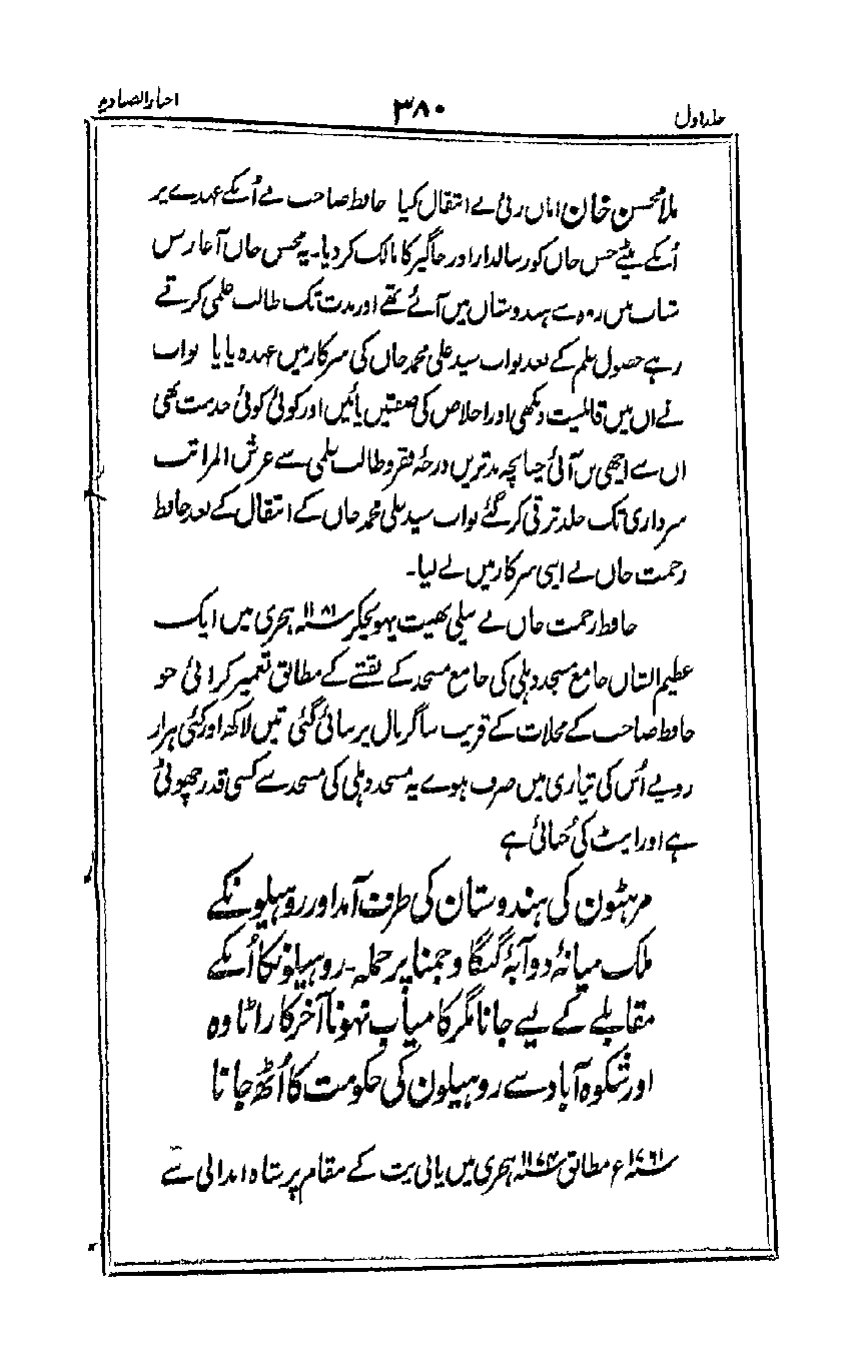 جلد اول
۳۸۰
اخبار الصنادید
ملا محسن خان اماں زئی نے انتقال کیا حافظ صاحب نے اُنکے عہدے پر
اُنکے بیٹے حسن خاں کو رسالدار اور جاگیر کا مالک کر دیا۔ یہ محسن خاں آغاز سن
شباب میں روہ سے ہندوستاں میں آئے تھے اور مدت تک طالب علمی کرتے
رہے حصول علم کے بعد نواب سید علی محمد خاں کی سرکار میں عہدہ پایا نواب
نے اں میں قابلیت دیکھی اور اخلاص کی صفتیں پائیں اور کوئی کوئی خدمت بھی
اں سے اچھی بں آئی چنانچہ بدترین درجۂ فقر و طالب علمی سے عرش المراتب
سرداری تک جلد ترقی کر گئے نواب سید علی محمد خاں کے انتقال کے بعد حافظ
رحمت خاں نے اپنی سرکار میں لے لیا۔
حافظ رحمت خاں نے پیلی بھیت پہونچکر ۱۱۸۱ ہجری میں ایک
عظیم الشاں جامع مسجد دہلی کی جامع مسجد کے نقشے کے مطابق تعمیر کرائی جو
حافظ صاحب کے محلات کے قریب ساگر تال پر بنائی گئی تیں لاکھ اور کئی ہزار
روپے اُس کی تیاری میں صرف ہوے یہ مسجد دہلی کی مسجد سے کسی قدر چھوٹی
ہے اور اینٹ کی چنائی ہے
مرہٹون کی ہندوستان کی طرف آمد اور روہیلونکے
ملک میانۂ دوآبۂ گنگا و جمنا پر حملہ۔ روہیلونکا اُنکے
مقابلے کے لیے جانا مگر کامیاب نہونا آخر کار اٹاوہ
اور شکوہ آباد سے روہیلون کی حکومت کا اُٹھ جانا
۱۷۶۱ء مطابق ۱۱۷۴ ہجری میں پانی پت کے مقام پر شاہ ابدالی نے